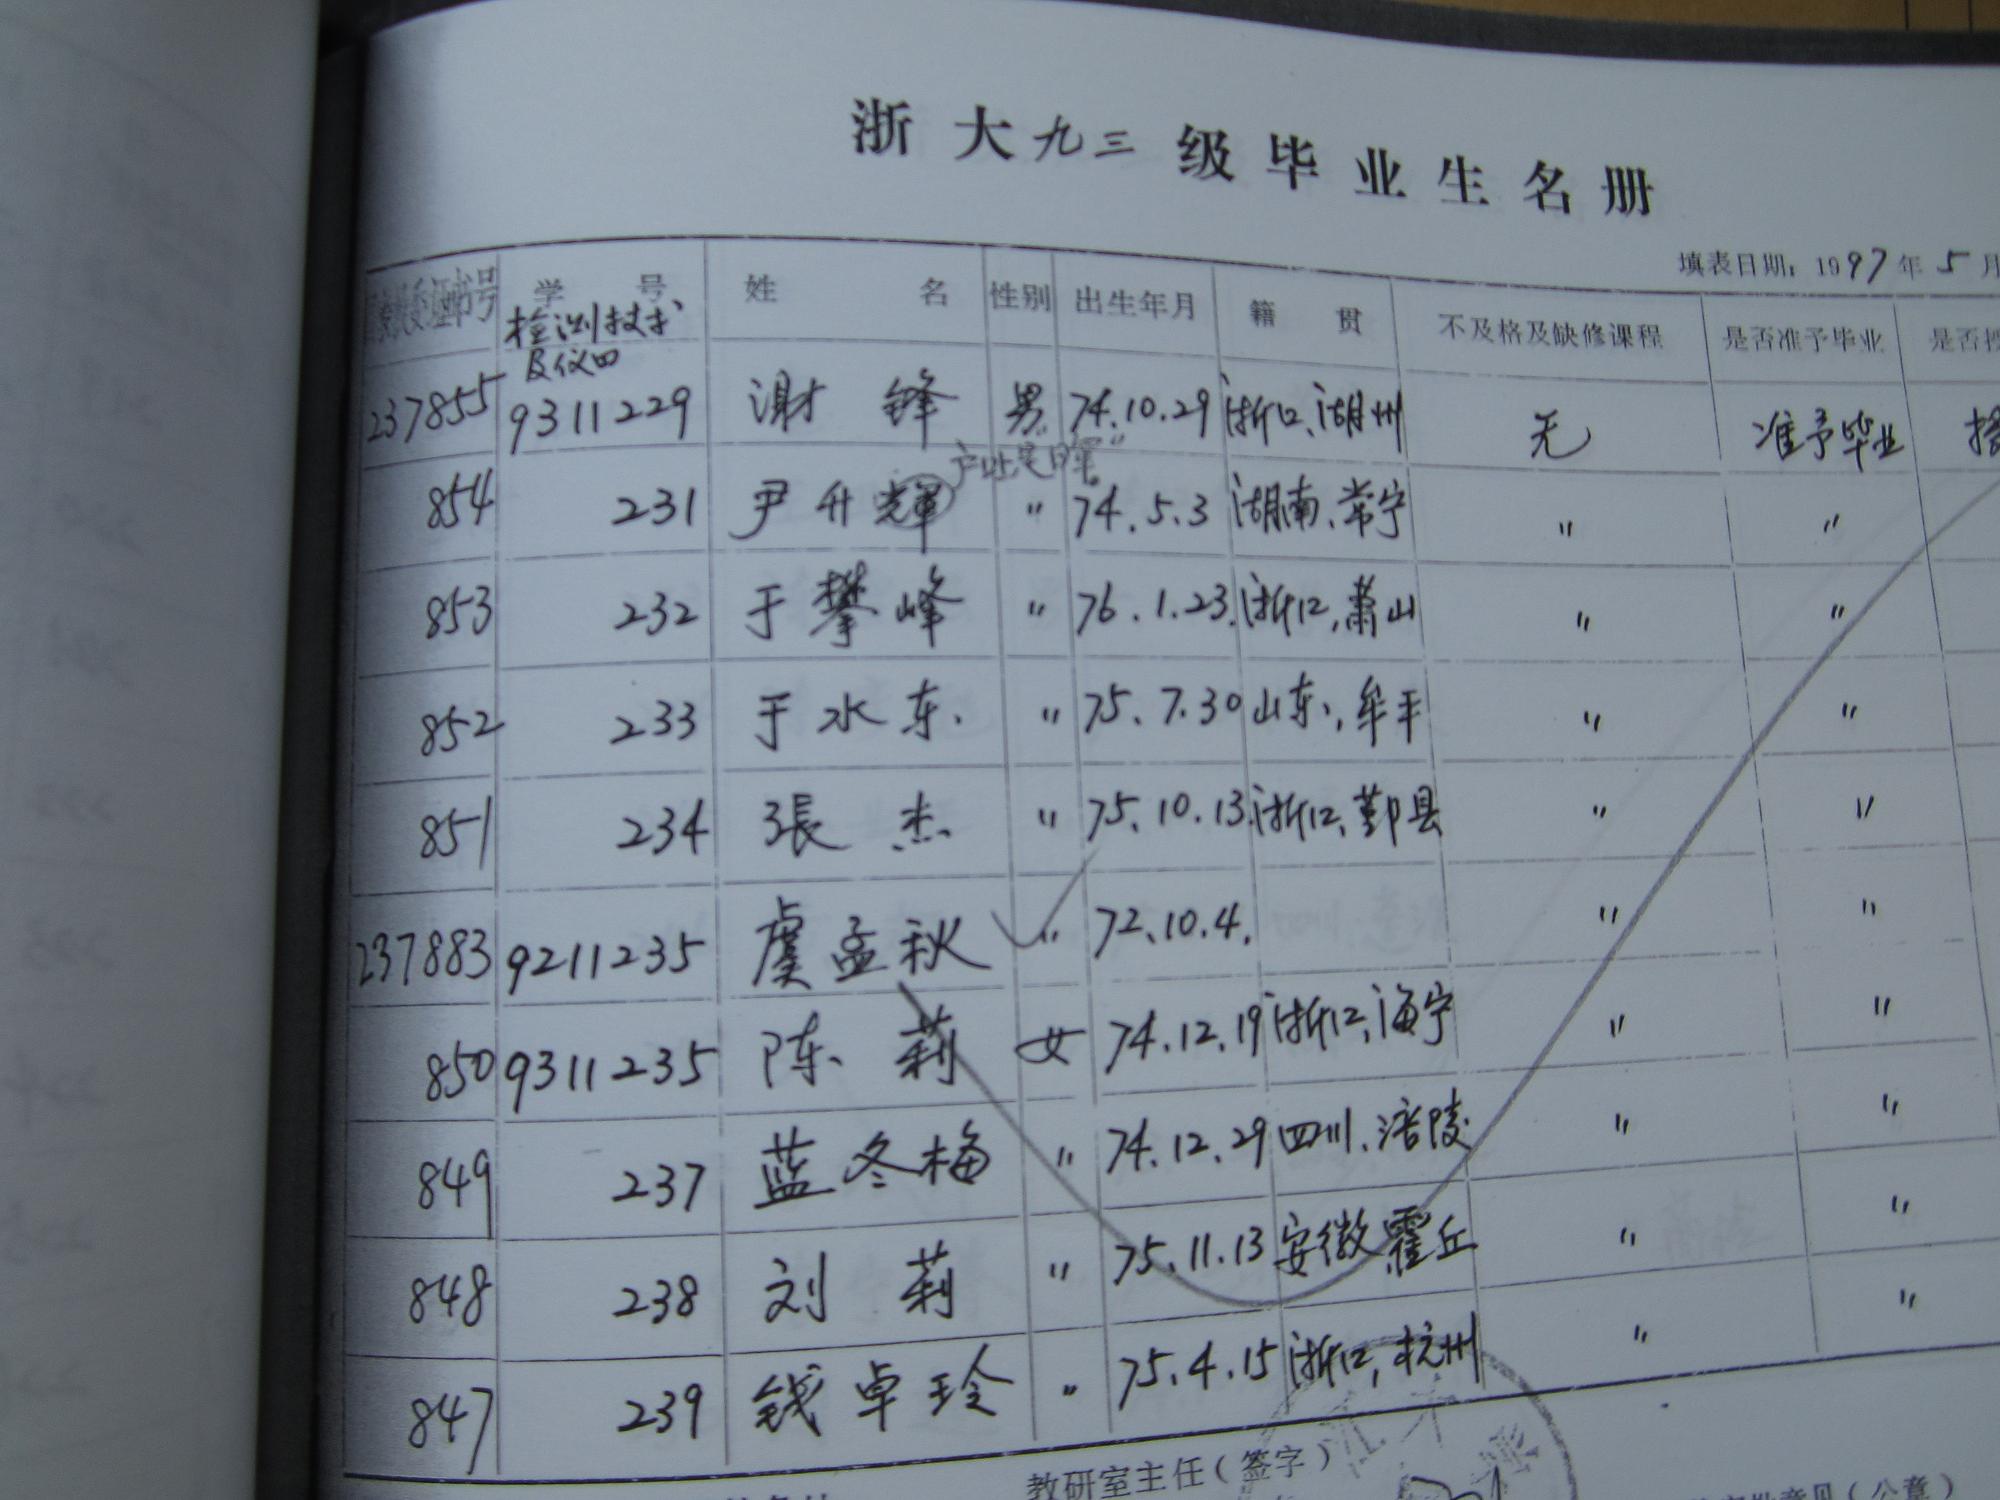 浙大九三级毕业生名册
填表日期：1997年5月
证书号 学号 姓名 性别 出生年月 籍贯 不及格及缺修课程 是否准予毕业 是否授
检测技术
及仪四
237855 9311229 谢锋 男 74.10.29 浙江、湖州 无 准予毕业 授
854 231 尹升輝 〃 74.5.3 湖南、常宁 〃 〃
853 232 于攀峰 〃 76.1.23. 浙江,萧山 〃 〃
852 233 于水东 〃 75.7.30 山东,牟平 〃 〃
851 234 張杰 〃 75.10.13. 浙江、鄞县 〃 〃
237883 9211235 虞孟秋 〃 72.10.4. 〃 〃
850 9311235 陈莉 女 74.12.19 浙江,海宁 〃 〃
849 237 蓝冬梅 〃 74.12.29 四川、涪陵 〃 〃
848 238 刘莉 〃 75.11.13 安徽霍丘 〃 〃
847 239 钱卓玲 〃 75.4.15 浙江,杭州 〃 〃
教研室主任(签字)
意见(公章)